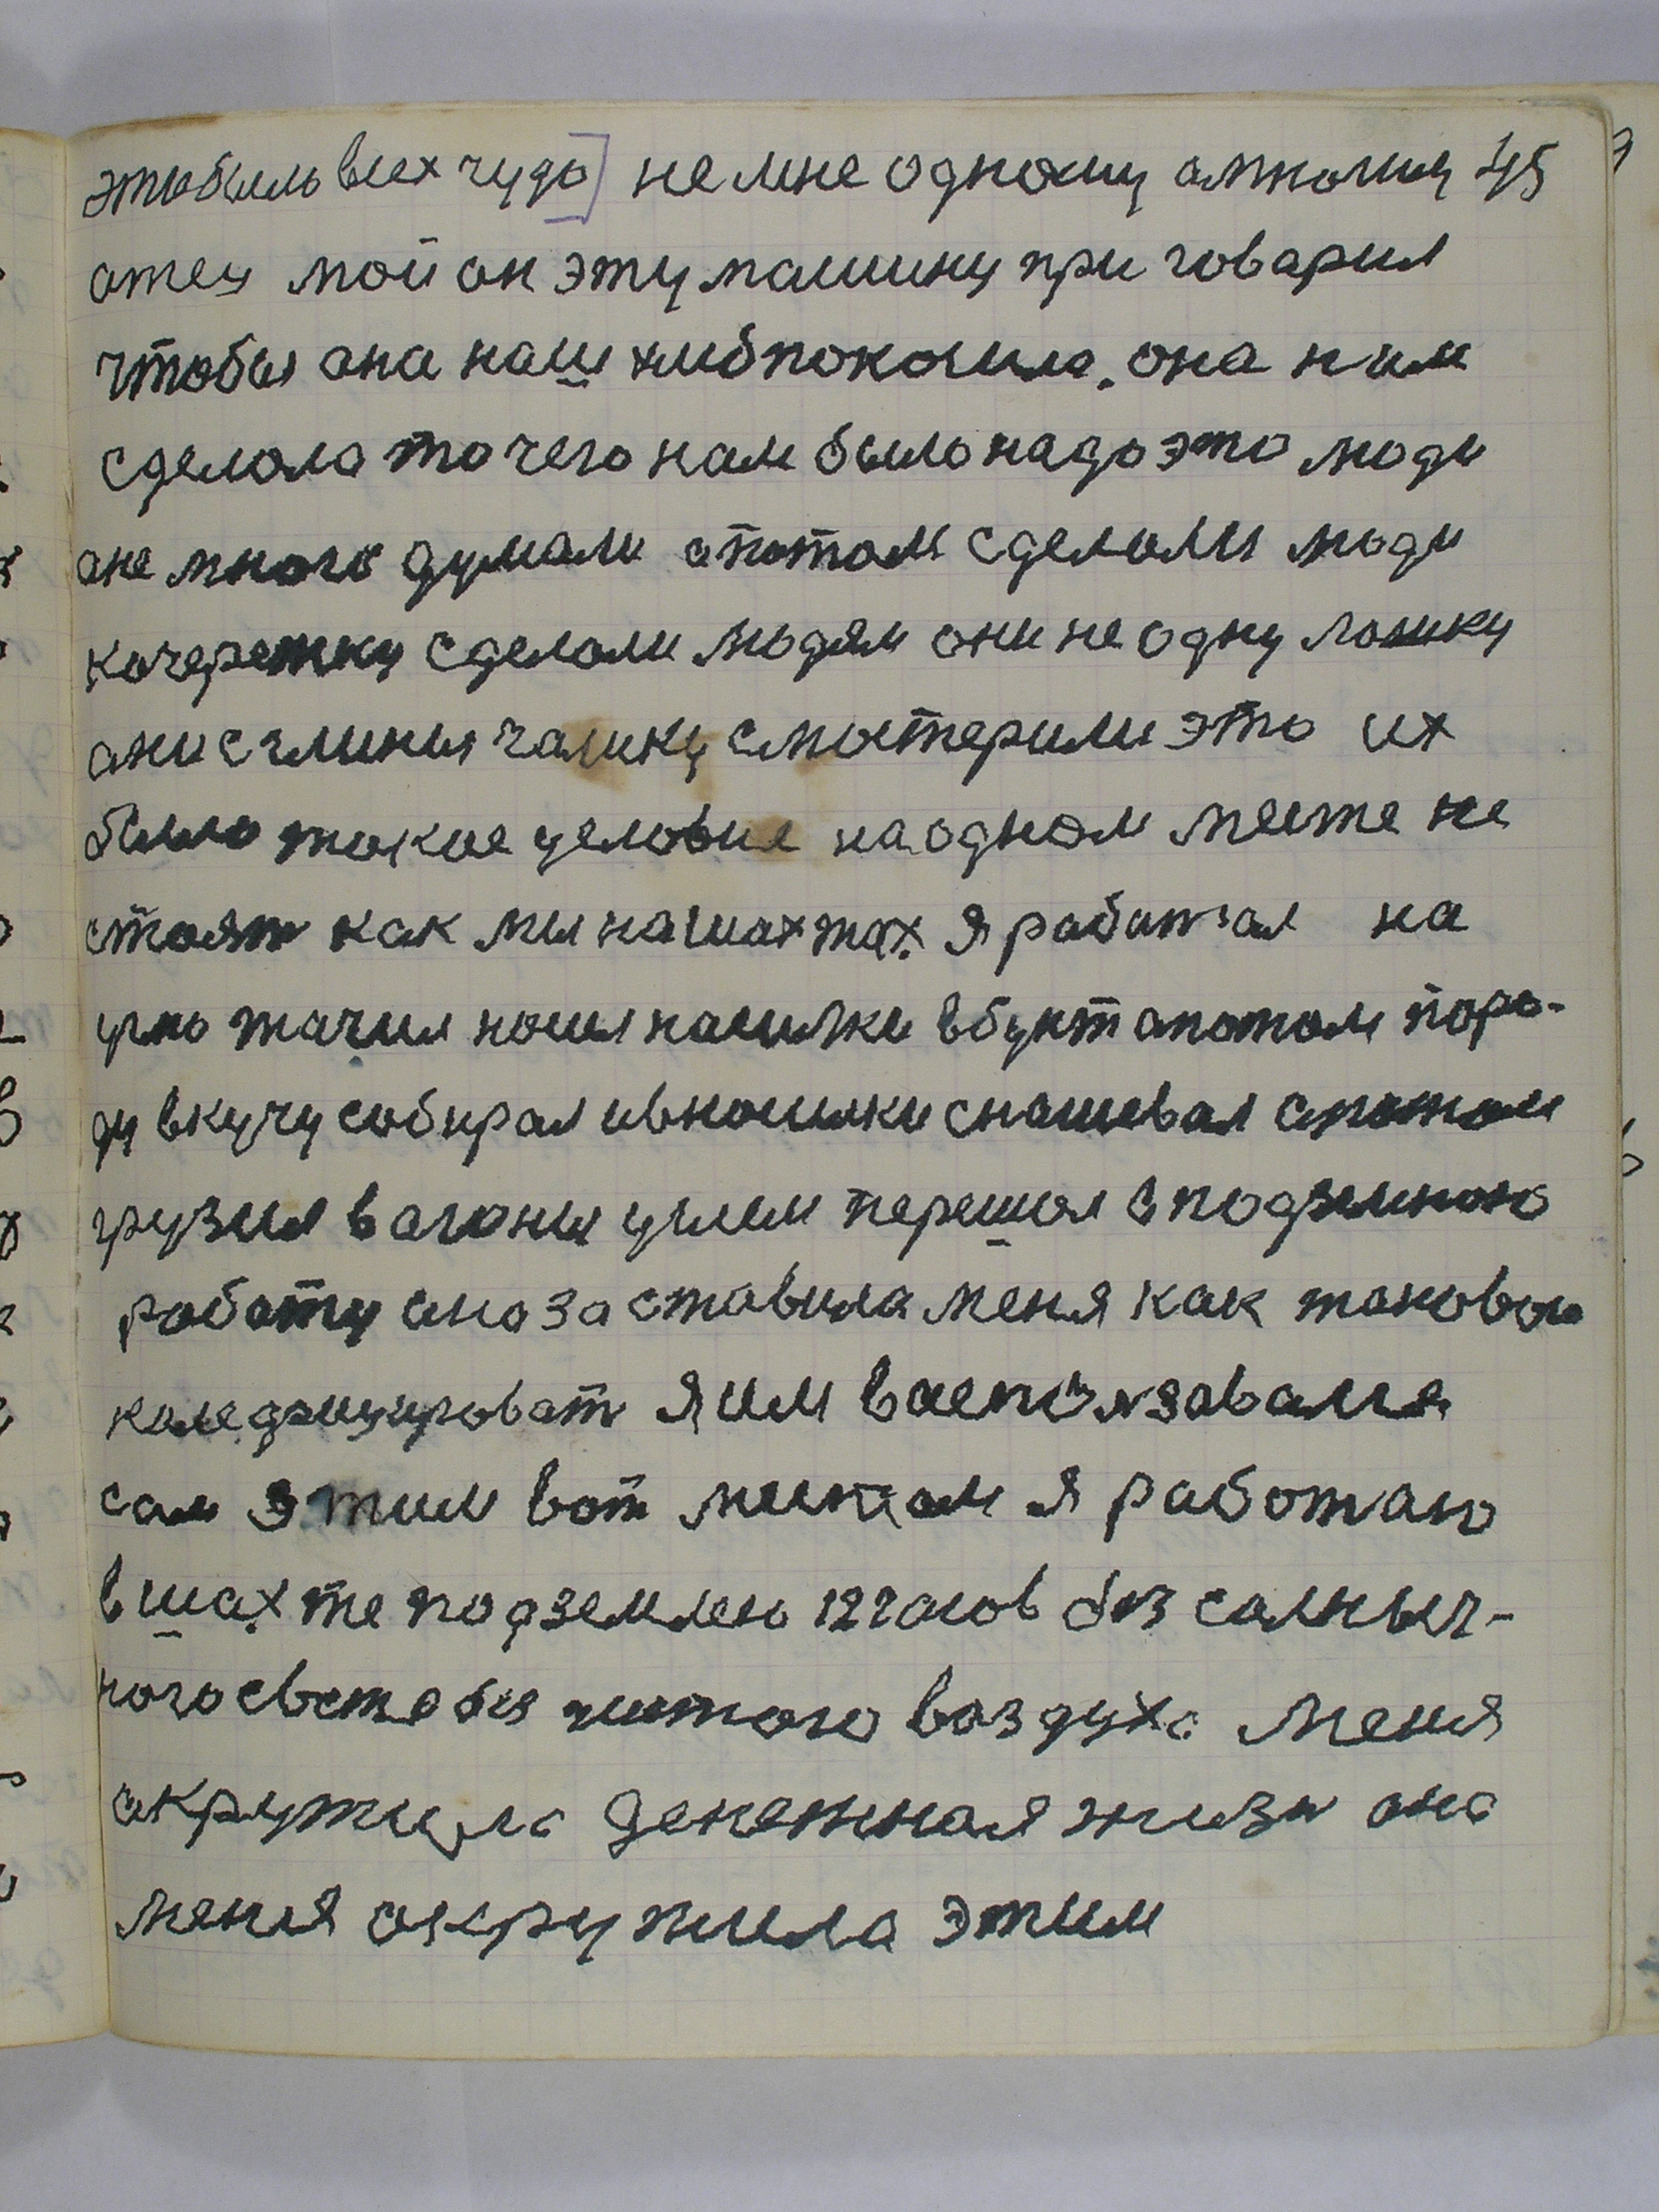 это быль всех чудо] не мне одному 45
отец мой он эту машину при говарил
чтобы она наш хлиб покосила. она нам
сделала то чего нам было надо это люди
оне много думали а потом сделали люди
кочережку сделали людям они не одну ложку
они с глины чашку смостерили это их
было такое условие на одном месте не
стоят как мы на шахтах. я работал на
угль тачил носил насилки в бунт а потом поро-
ду в кучу собирал и в носилки снашевал а потом
грузил вагоны углем перешол в подземною
работу она заставила меня как таковою
я им васпользавался
сам этим вот местам я работаю
в шахте под землею 12 часов без салныч-
ного света без чистого воздуха меня
окружила денежная жизн она
меня окружила этим